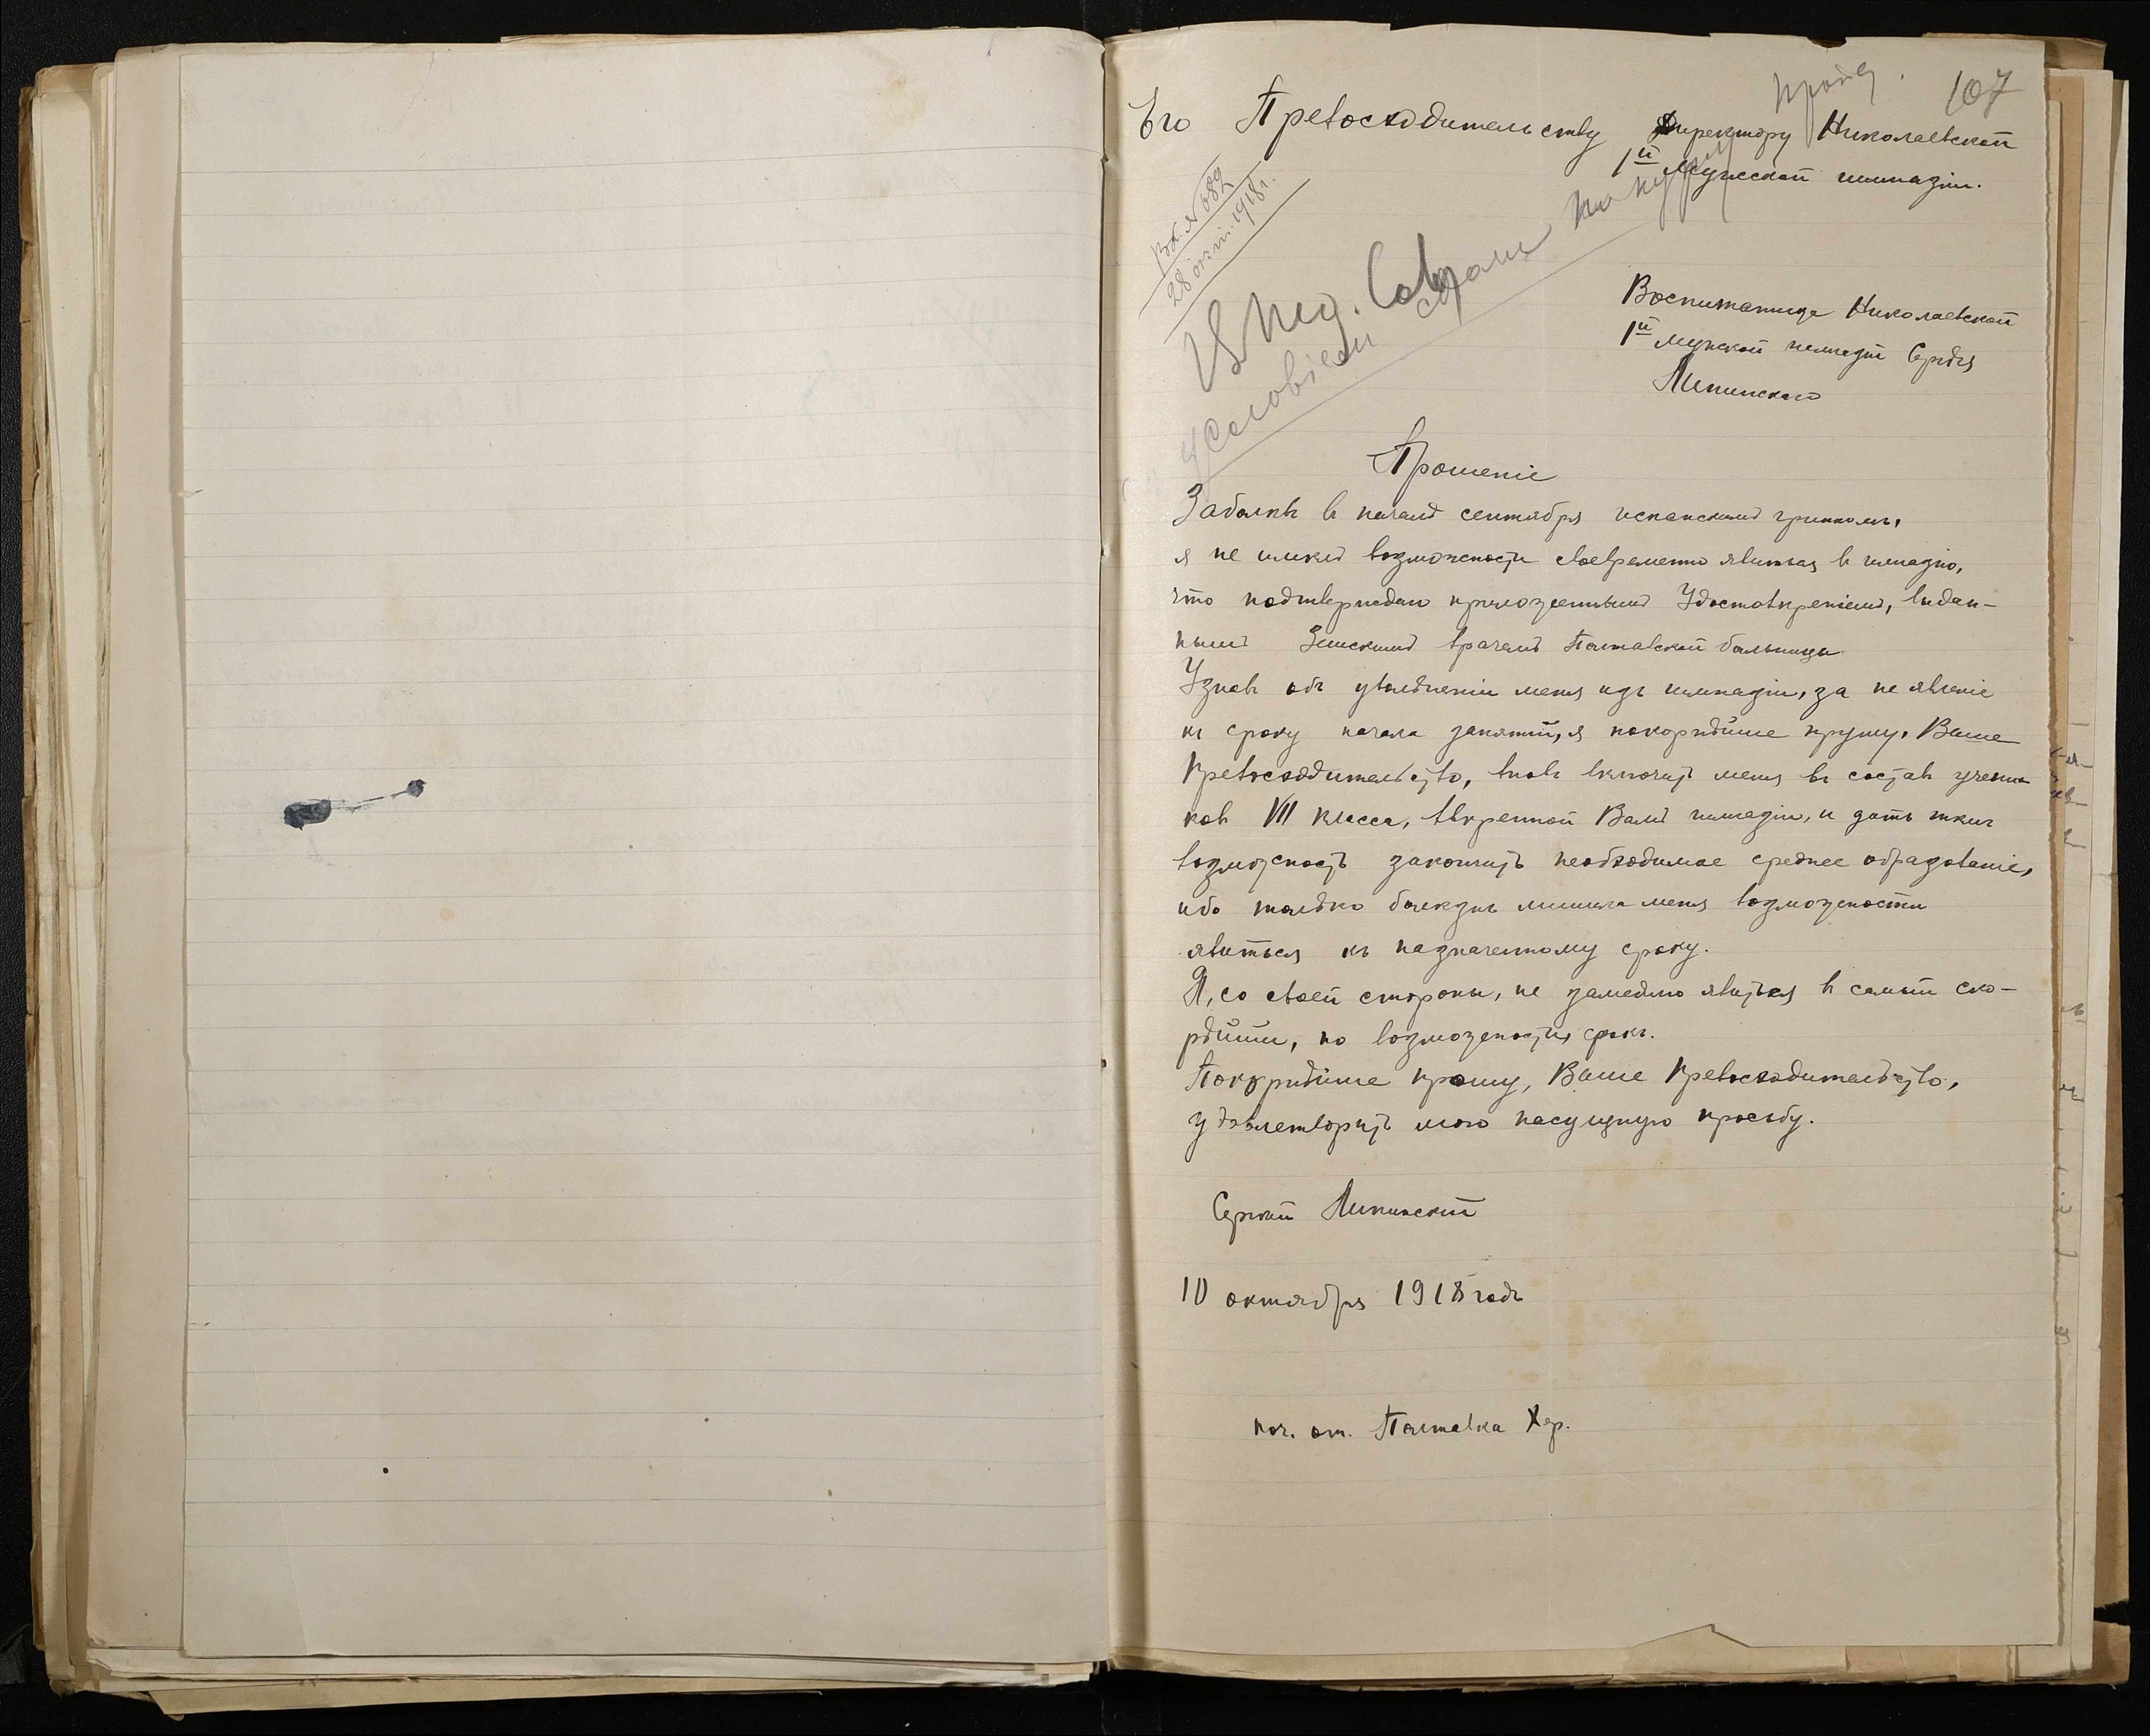 107
Его Превосходительству Директору Николаевской
1й Мужской гимназіи.
Вх. № 689
28 окт. 1918 г.
В Пед. Сов.
условіем сдачи
Воспитаннца Николаевской
1й Мужской гимназіи Сергѣя
Липинскаго
Прошеніе
Заболѣвъ въ началѣ сентября испанскимъ гриппомъ,
я не имѣлъ возможности своевременно явиться в гимназію,
что подтверждаю приложеннымъ Удостовѣреніемъ, выдан-
нымъ Земскимъ врачемъ Полтавской больницы.
Узнавъ объ увольненіи меня изъ гимназіи, за не явленіе
къ сроку начала занятій, я покорнѣйше прошу, Ваше
Превосходительство, вновь включить меня въ составъ учени-
ковъ VII класса, ввѣренной Вамъ гимназіи, и дать мнѣ
возможность закончить необходимое среднее образованіе,
ибо только болѣзнь лишила меня возможности
явиться къ назначенному сроку.
Я, со своей стороны, не замедлю явиться в самый ско-
рѣйшій, по возможности, срокъ.
Покорнѣйше прошу, Ваше Превосходительство,
удовлетворить мою насущную просьбу.
Сергѣй Липинскій
10 октября 1918 годъ
поч. от. Полтавка Хер.